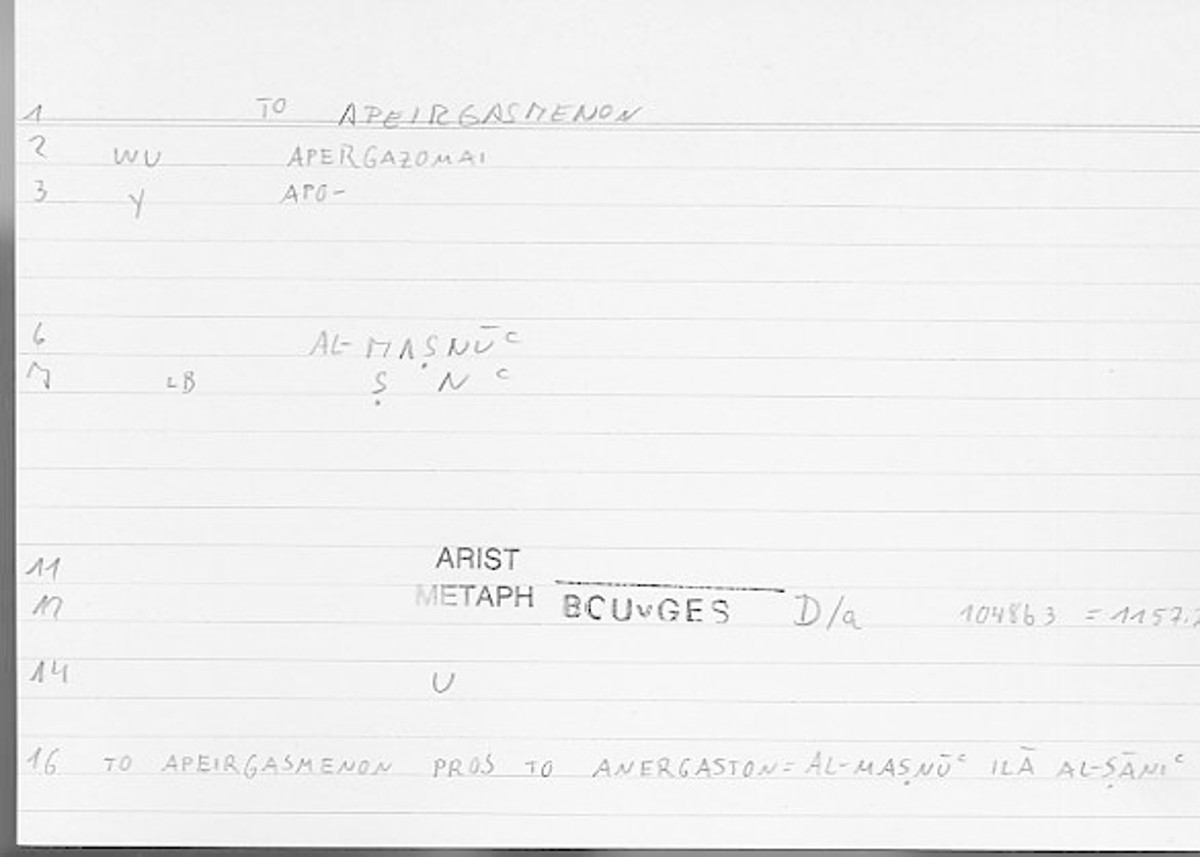 1 TO APEIRGASMENON
2 WU APERGAZOMAI
3 Y APO-
6 AL-MAṢNŪᶜ
7 LB Ṣ N ᶜ
11 ARIST
12 METAPH BOUYGES D/a 1048b3 = 1157.2
14 U
16 TO APEIRGASMENON PROS TO ANERGASTON = AL-MAṢNŪᶜ ILĀ AL-ṢĀNIᶜ